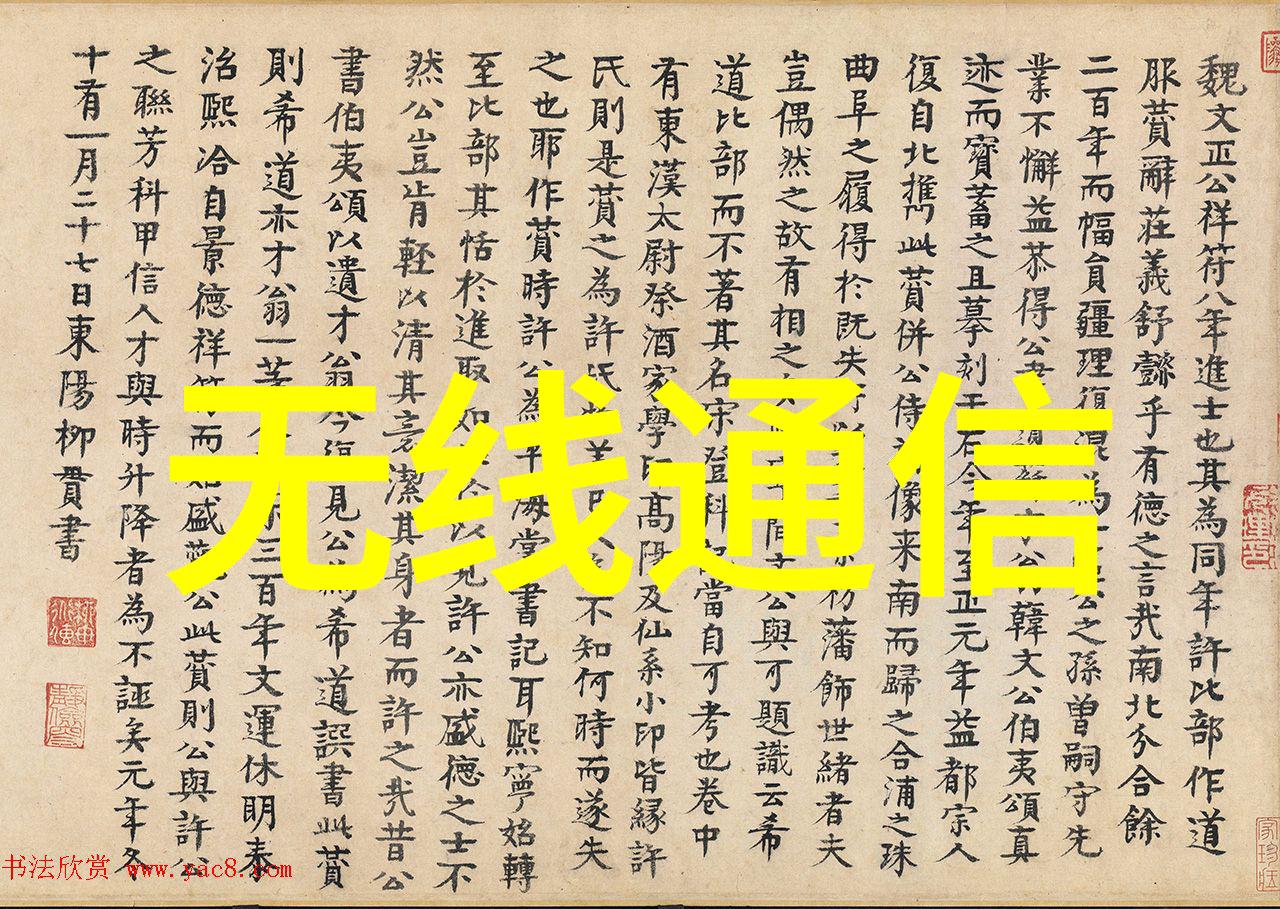 魏文正公祥符八年進士也其為同年許比部作道
服賛辭莊義舒懿乎有德之言哉南北分合餘
二百年而幅員疆理復混為一公之孫曾嗣守先
業不懈益恭得公書韓文公伯夷頌真
迹而寶蓄之且摹刻于石今年至正元年益都宗人
復自北携此賛併公侍祠像来南而歸之合浦之珠
曲阜之履得於既失藩飾世緒者夫
豈偶然之故有相之公與可題識云希
道比部而不著其名宋登科記當自可考也卷中
有東漢太尉祭酒家學印高陽及仙系小印皆緣許
氏則是賛之為許氏不知何時而遂失
之也耶作賛時許公為平海掌書記耳熙寧始轉
至比部其恬於進取如見許公亦盛德之士不
然公豈肯輕以清其意潔其身者而許之哉昔公
書伯夷頌以遺才翁今復見公為希道譔書此賛
則希道亦才翁一等人三百年文運休明泰
治熙洽自景德祥符而始盛觀公此賛則公與許公
之聯芳科甲信人才與時升降者為不誣矣元年冬
十有一月二十七日東陽柳貫書
无线通信
书法欣赏 www.yac8.com